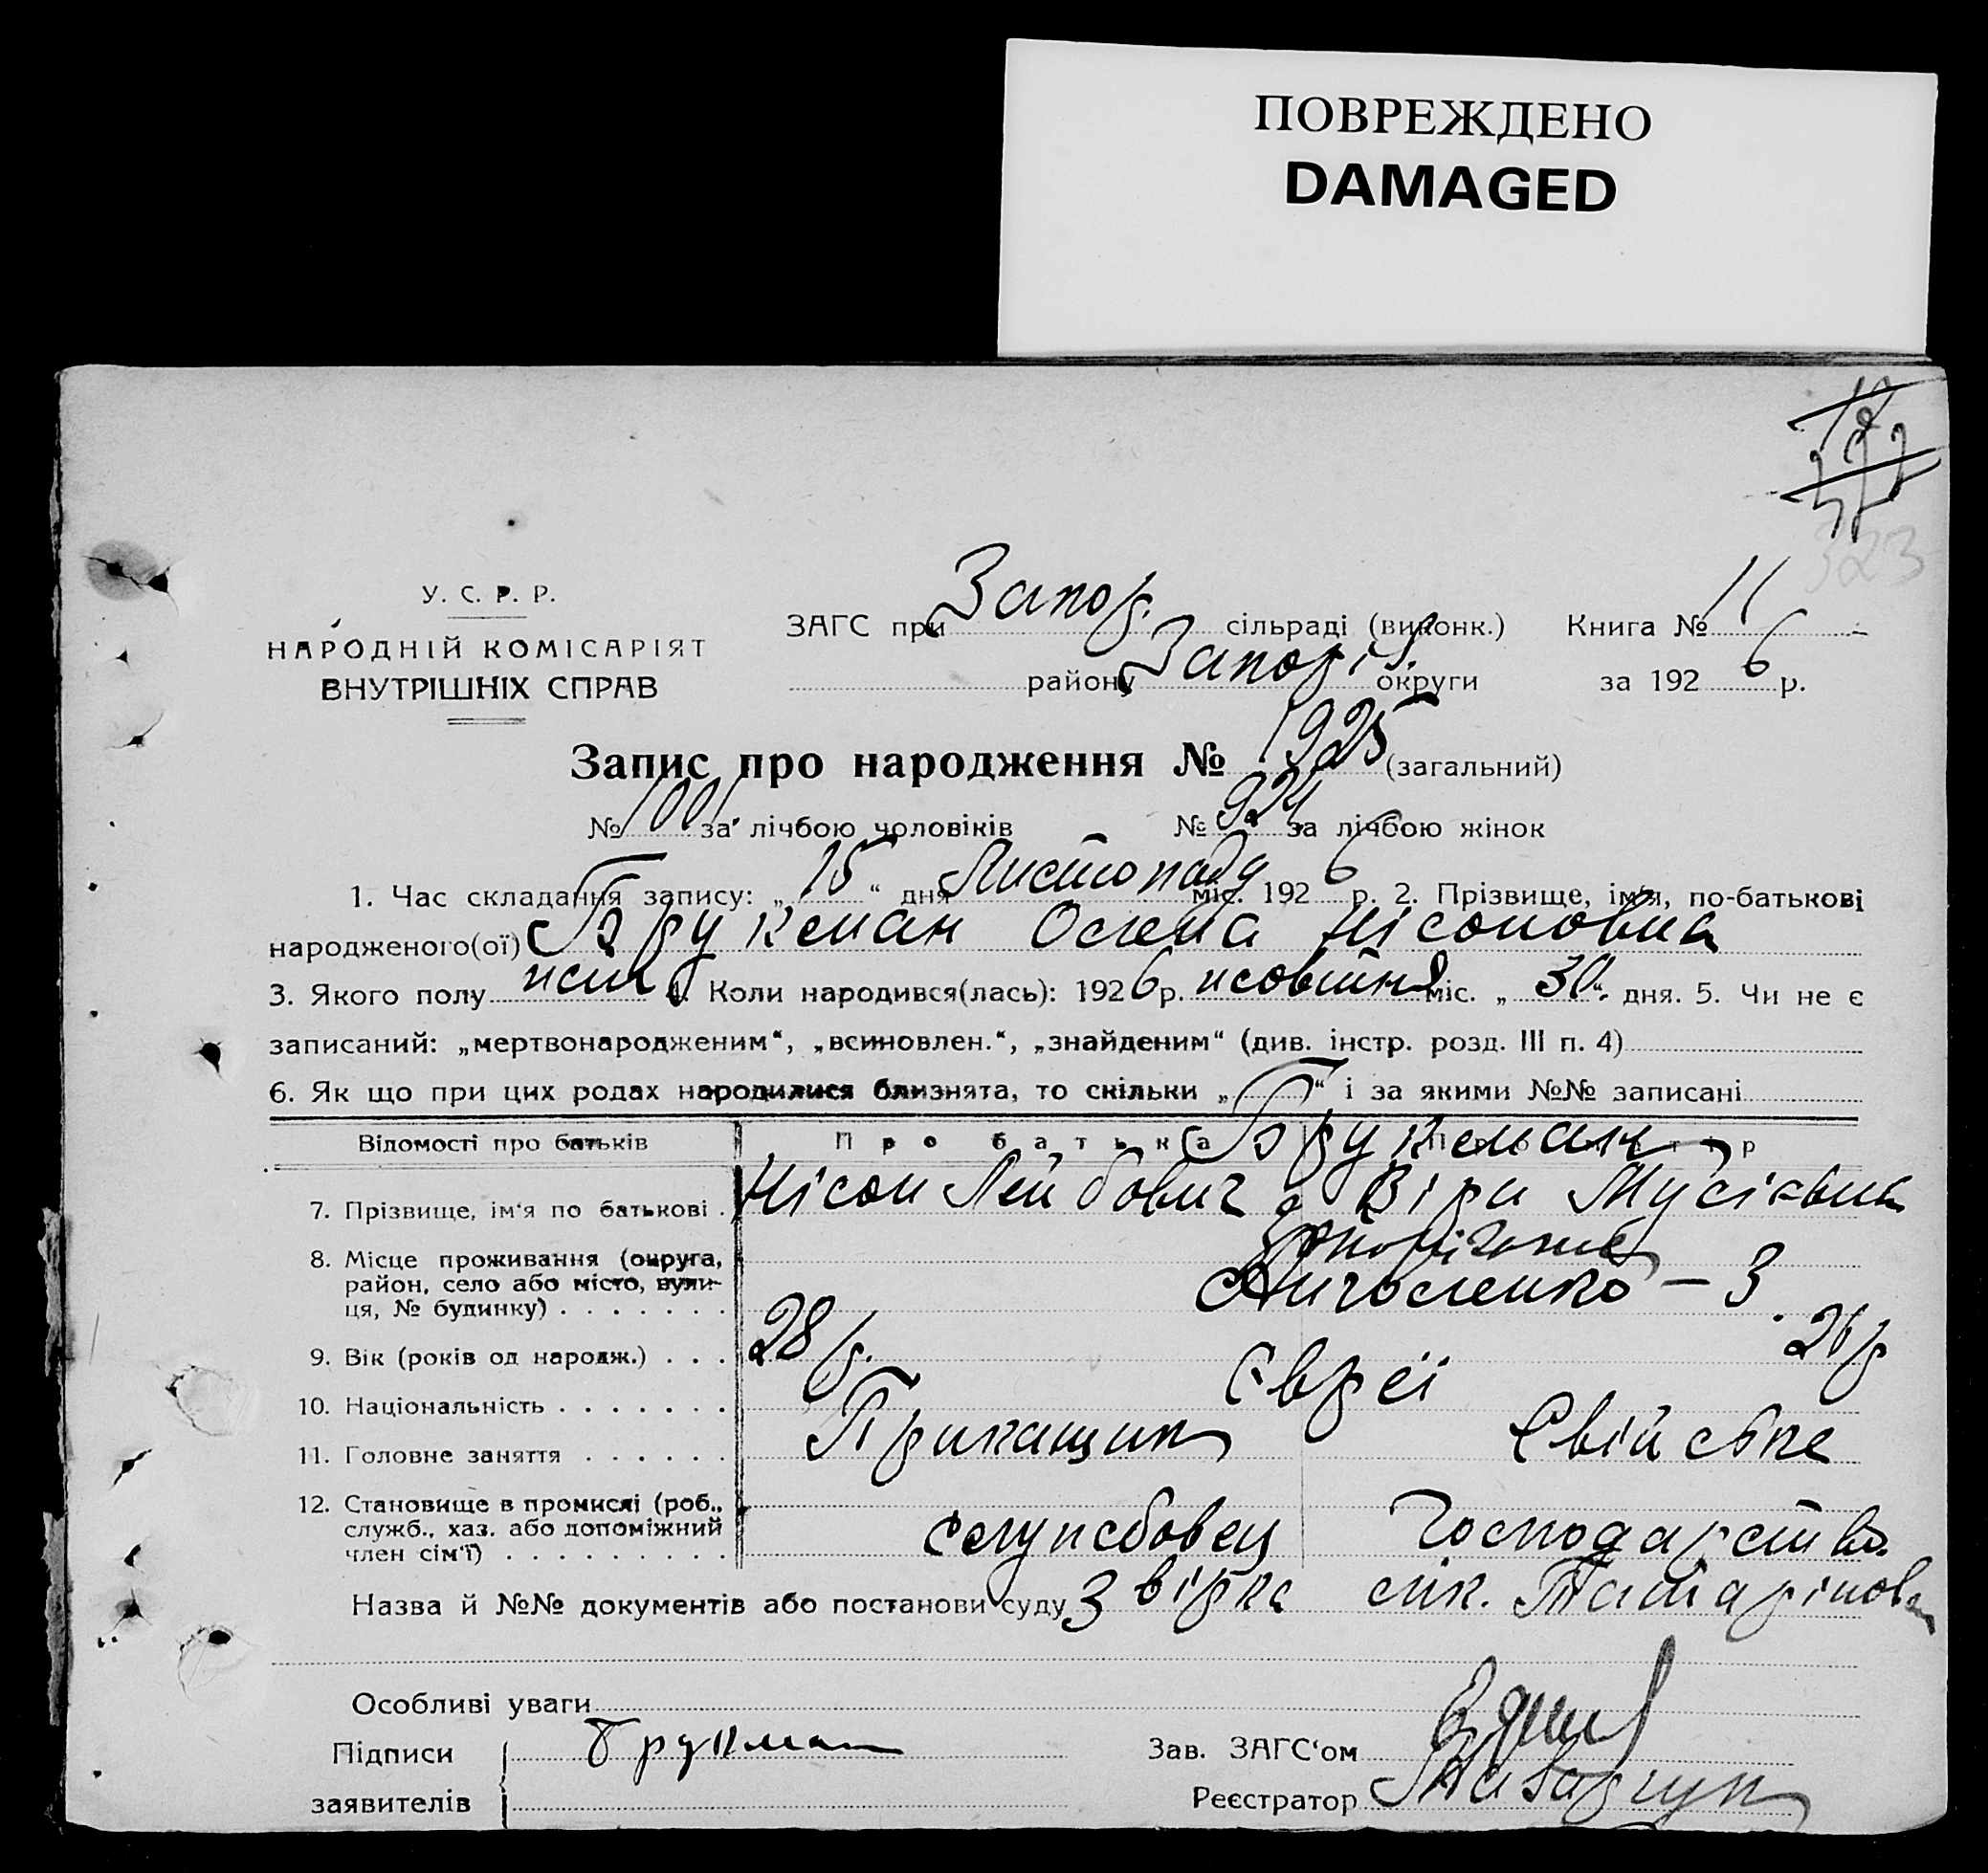 ПОВРЕЖДЕНО
DAMAGED
323
У. С. Р. Р.
НАРОДНІЙ КОМІСАРІЯТ
ВНУТРІШНІХ СПРАВ
ЗАГС при Запор. сільраді (виконк.) Книга № 11
району Запоріз. округи за 1926 р.
Запис про народження № 1925 (загальний)
№ 1001 за лічбою чоловіків № 924 за лічбою жінок
1. Час складання запису: „ 15 “ дня Листопада міс. 1926 р. 2. Прізвище, ім'я, по-батькові
народженого(ої) Брукман Нісоновна
3. Якого полу жін 4. Коли народився(лась): 1926 р. жовтня міс. „ 30 “ дня. 5. Чи не є
записаний: „мертвонародженим“, „всиновлен.“, „знайденим“ (див. інстр. розд. III п. 4)
6. Як що при цих родах народилися близнята, то скільки „ “ і за якими №№ записані
Відомості про батьків Про батька
Брукман
7. Прізвище, ім'я по батькові . Нісон Лейбович Віра Мусіївна
8. Місце проживання (округа,
район, село або місто, вули-
ця, № будинку) . . . . . . . – 3
9. Вік (років од народж.) . . . 28 р. 26 р
10. Національність . . . . . . . Євреї
11. Головне заняття . . . . . . Прикащик Свійське
12. Становище в промислі (роб.,
служб., хаз. або допоміжний
член сім'ї) . . . . . . . . . службовец господарство
Назва й №№ документів або постанови суду З вірка Татарінова
Особливі уваги
Підписи Брукман Зав. ЗАГС'ом
заявителів Реєстратор